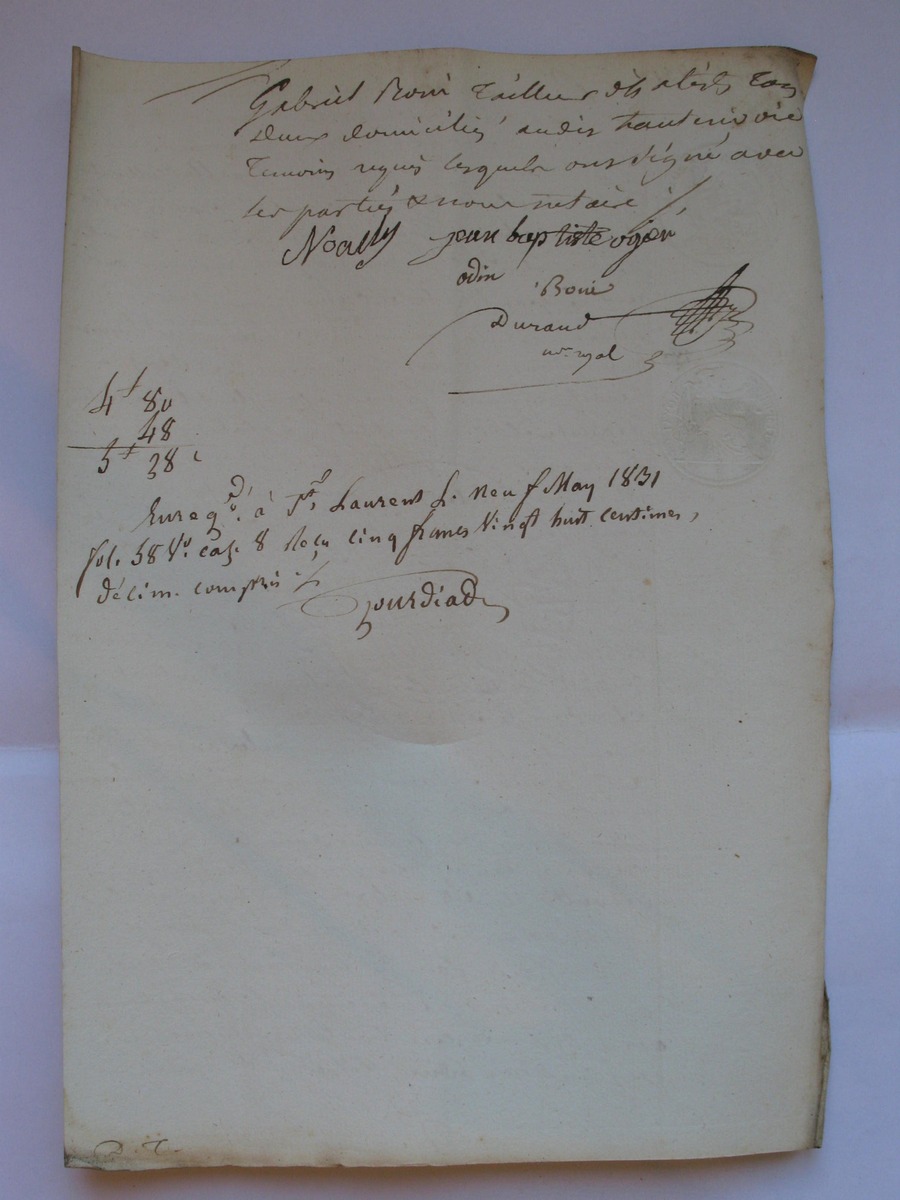 Gabriel Roue Tailleur d'h tous
deux domiciliés audit hauterivoire
Temoins requis lesquels ont signé avec
les parties & nous notaire
Noally jean baptiste ogier
odin Roue
Durand
nre. royal
4f 80
48
5f 28 c
Enregé. à St. Laurent L. neuf May 1831
fol. 58 Vo. case 8 Reçu cinq francs Vingt huit centimes,
décim. compris
Gourdiad